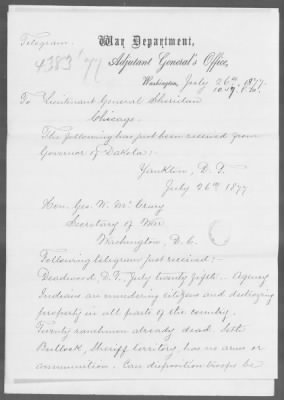 Telegram.
War Department,
4383 '77
Adjutant General's Office,
Washington, July 26th, 1877.
To Lieutenant General Sheridan
Chicago.
The following has just been received from
Governor of Dakota:-
Yankton, D. T.
July 26th 1877
Hon. Geo. W. McCrary
Secretary of War
Washington, D. C.
Following telegram just received:-
Deadwood, D. T., July twenty fifth. - Agency
Indians are murdering citizens and destroying
property in all parts of the country.
Twenty ranchmen already dead. Seth
Bullock, Sheriff territory, has no arms or
ammunition. Can disposition troops be